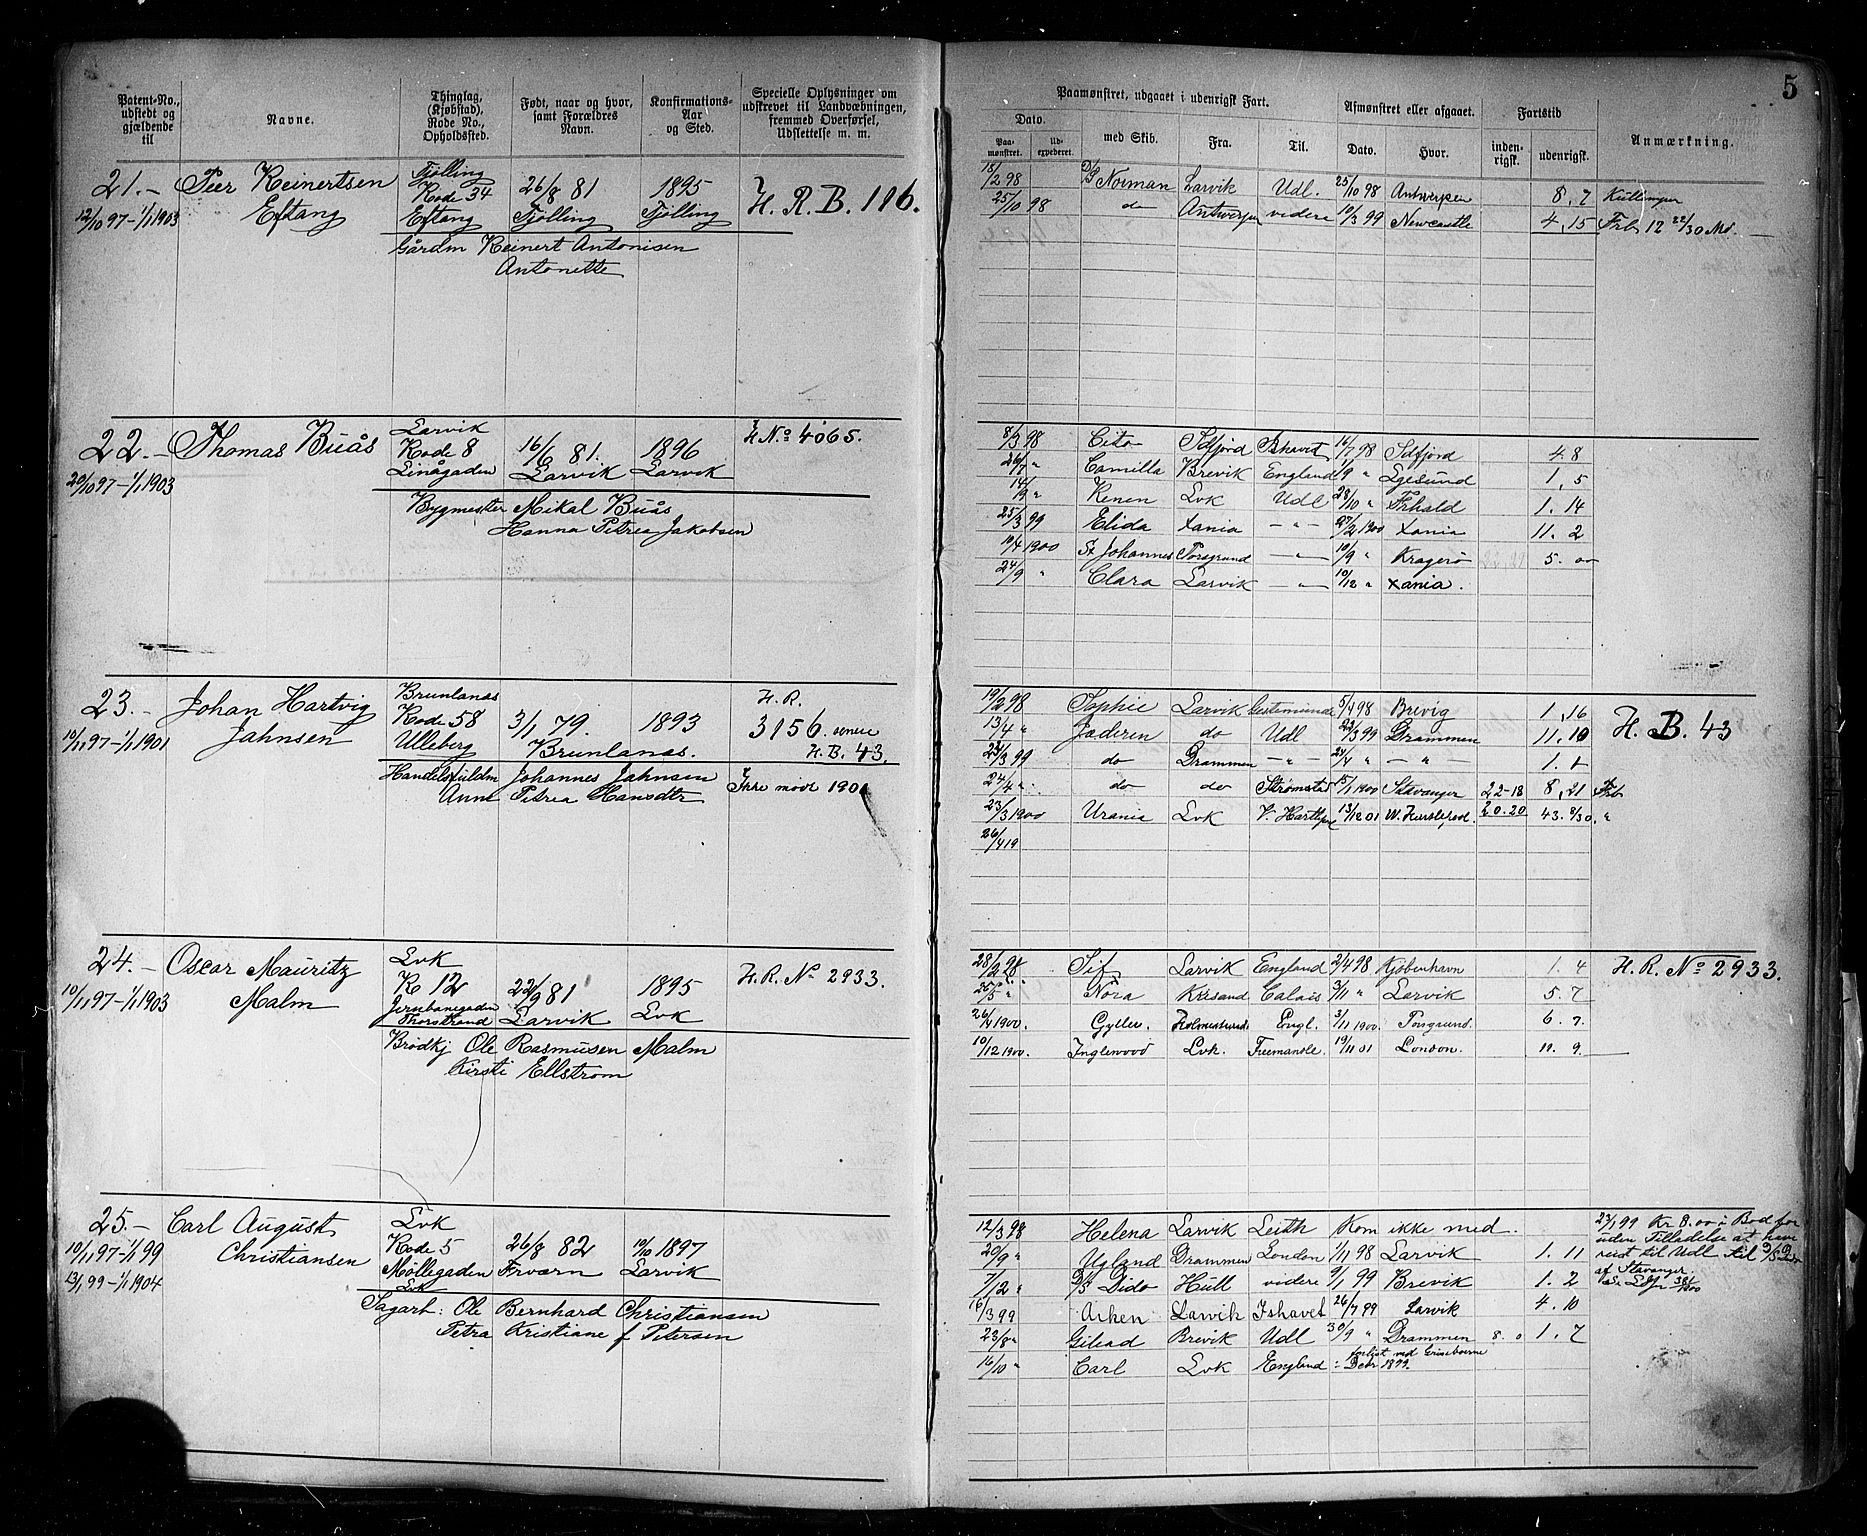 5
Patent-No., udstedt og gjældende til
Navne.
Thinglag, (Kjøbstad), Rode No., Opholdssted.
Født, naar og hvor, samt Forældres Navn.
Konfirmations-Aar og Sted.
Specielle Oplysninger om udskrevet til Landvæbningen, fremmed Overførsel, Udslettelse m. m.
Paamønstret, udgaaet i udenrigsk Fart.
Afmønstret eller afgaaet.
Fartstid
Anmærkning.
Dato.
Paa-mønstret.
Ud-expederet.
med Skib.
Fra.
Til.
Dato.
Hvor.
inden-rigsk.
udenrigsk.
21.- Peer Reinertsen Tjølling
Rode 34 26/8 81 1895 H. R. B. 116.
12/10 97-1/1 1903 Eftang Eftang Tjølling Tjølling
Gårdm Reinert Antonisen
Antonette
18/2 98 D/S Norman Larvik Udl. 25/10 98 Antwerpen 8, 7
25/10 98 do Antwerpen videre 10/3 99 Newcastle 4, 15 Frb 12 22/30 Md.
22.- Thomas Buås Larvik H No 4065.
Rode 8 16/6 81. 1896
20/10 97-1/1 1903 Linågaden Larvik Larvik
Bygmester Mikal Buås
Hanna Petrea Jakobsen
8/3 98 Cito Sdfjord Ishavet 16/7 98 Sdfjord 4 8
26/7 " Camilla Brevik England 1/9 " Lgesund 1, 5
14/9 " Renen Lvk Udl 28/10 " Frhald 1. 14
25/3 99 Elida Xania - " - 27/2 1900 Xania 11. 2
10/4 1900 St Johannes Porsgrund - " - 10/9 " Kragerø 5. 00
24/9 " Clara Larvik - " - 10/12 " Xania.
23.- Johan Hartvig Brunlanas H. R.
Rode 58 3/1 79. 1893 3156 senere
10/11 97-1/1 1901 Jahnsen Ulleberg Brunlanas. H. B. 43.
Handelsfuldm Johannes Jahnsen Ikke mødt 1901
Anne Petrea Hansdtr
19/2 98 Sophie Larvik Gestemünde 5/4 98 Brevig 1, 16 H. B. 43
13/4 " Jæderen do Udl 23/3 99 Drammen 11. 10
23/3 99 do Drammen - " - 24/4 " - " - 1. 1
24/4 " do do Strømstad 15/1 1900 Stavanger 22-18 8, 21 Frb
23/3 1900 Urania Lvk V. Hartlpol 13/12 01 20.20 43. 8/30. "
26/4 19
24.- Oscar Mauritz Lvk
K 12 22/9 81 1895 H. R. No 2933.
10/11 97-1/1 1903 Malm Jernbanegaden
Thorstrand Larvik Lvk
Brødkj Ole Rasmusen Malm
Kirsti Ellstrøm
28/2 98 Sif Larvik England 2/4 98 Kjøbenhavn 1. 4 H. R. No 2933.
25/5 " Nora Krsand Calais 3/11 " Larvik 5. 7
26/4 1900. Gyller. Holmestrand Engl. 3/11 1900. Porsgrund. 6. 7.
10/12 1900. Inglewood Lvk. Freemantle. 19/11 01 London. 11. 9.
25.- Carl August Lvk
Rode 5 26/8 82 10/10 1897
10/11 97-1/1 99 Christiansen Møllegaden Tverærn Larvik
13/1 99-1/1 1904 Lvk
Sagarb: Ole Bernhard Christiansen
Petra Kristiane f Petersen
12/3 98 Helena Larvik Leith Kom ikke med.
20/9 " Ugland Drammen London 1/11 98 Larvik 1. 11
7/12 " D/S Dido Hull videre 9/1 99 Brevik 1. 2
16/3 99 Arken Larvik Ishavet 26/7 99 Larvik 4. 10
23/8 " Gilead Brevik Udl 30/9 " Drammen 8. 0 1. 7
16/10 " Carl Lvk England : forlist med Grisebøerne Debr 1899.
23/1 99 Kr 8.00 i Bod for
uden Tilladelse at have
reist til Udl
af Stavanger.